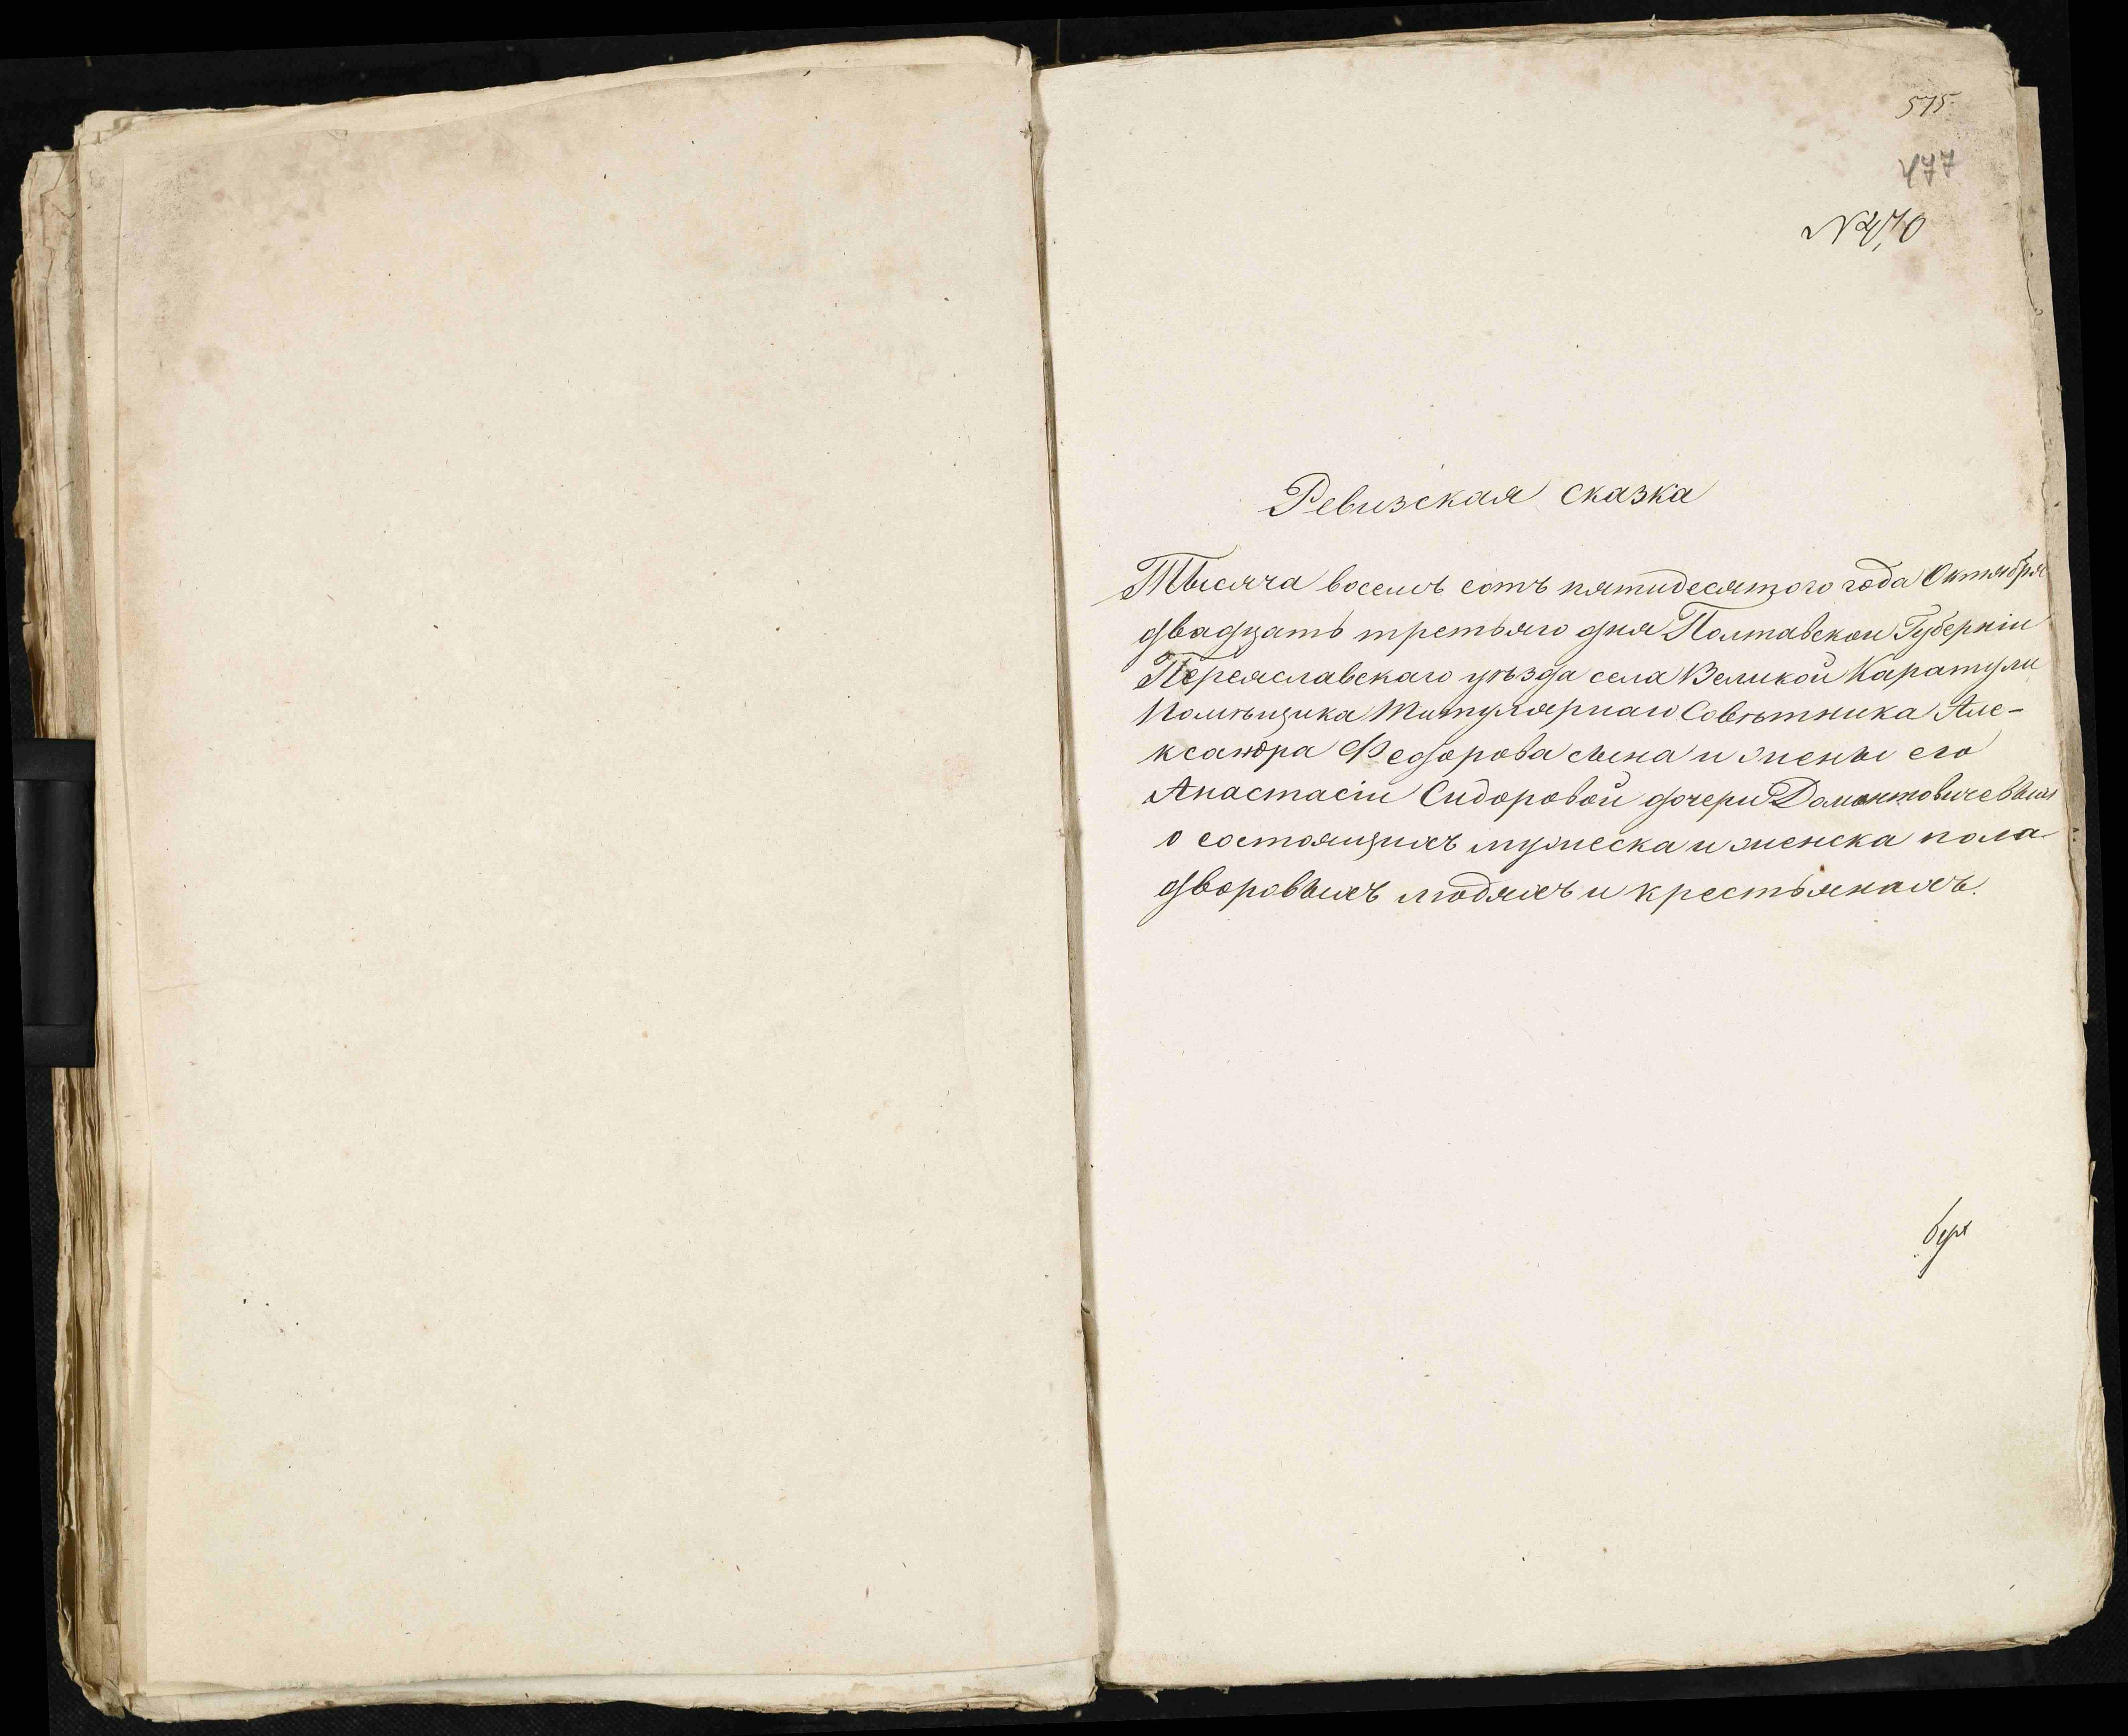 575.
477
Ревизская сказка
Тысяча восемь сотъ пятидесятого года Октября
двадцать третьяго дня Полтавской Губерніи
Переяславскаго уѣзда села Великой Каратули
Помѣщика Титулярнаго Совѣтника Але-
ксандра Федорова сына и жены его
Анастасіи Сидоровой дочери Домонтовичевыхъ
о состоящихъ мужеска и женска пола
дворовыхъ людяхъ и крестьянахъ.